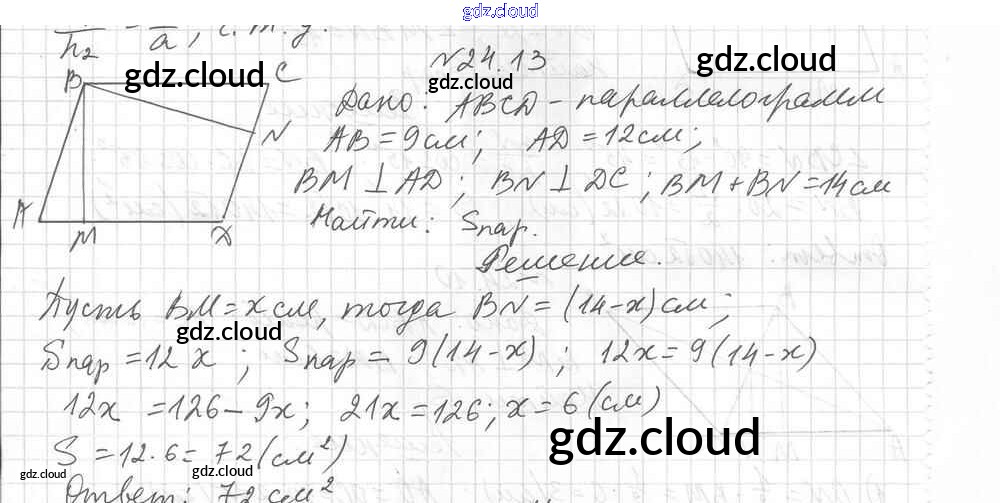 gdz.cloud
h₂ = a, ч.т.д.
№24.13
gdz.cloud
gdz.cloud
B C
N
A M D
Дано: ABCD - параллелограмм
AB = 9 см; AD = 12 см;
BM ⊥ AD; BN ⊥ DC; BM + BN = 14 см
Найти: Sпар.
Решение.
Пусть BM = x см, тогда BN = (14 - x) см;
gdz.cloud
Sпар = 12 x; Sпар = 9(14 - x); 12x = 9(14 - x)
12x = 126 - 9x; 21x = 126; x = 6 (см)
gdz.cloud
S = 12 · 6 = 72 (см²)
gdz.cloud
gdz.cloud
Ответ: 72 см²